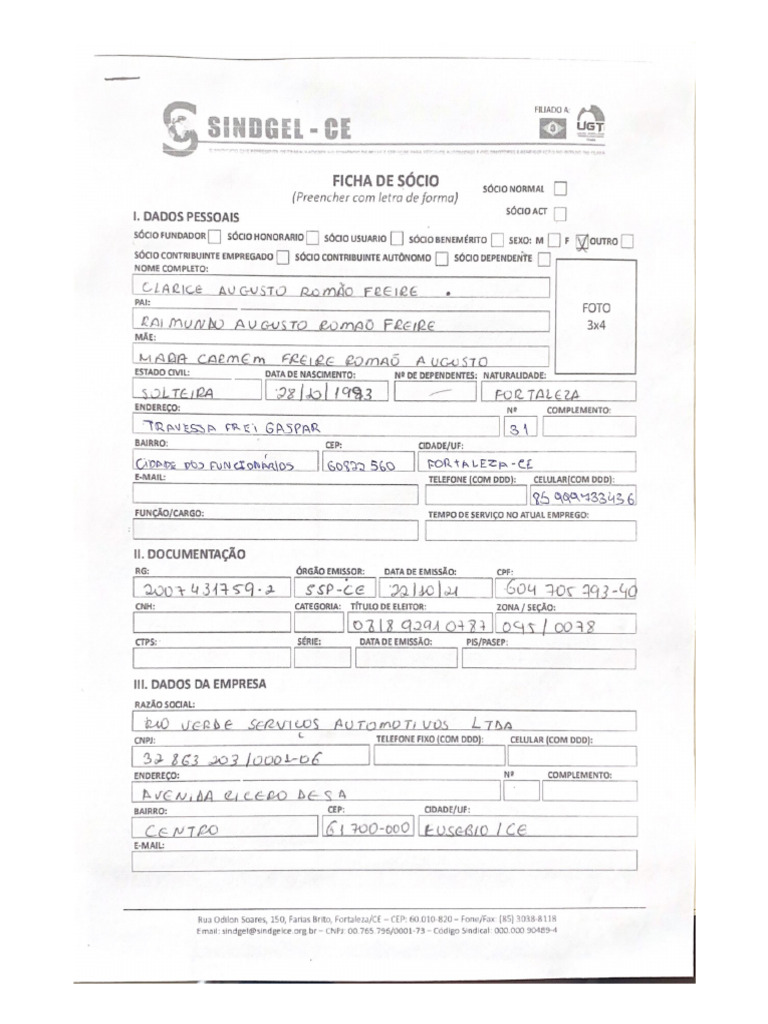 SINDGEL - CE
FILIADO A:
UGT
FICHA DE SÓCIO
(Preencher com letra de forma)
SÓCIO NORMAL
SÓCIO ACT
I. DADOS PESSOAIS
SÓCIO FUNDADOR SÓCIO HONORARIO SÓCIO USUARIO SÓCIO BENEMÉRITO SEXO: M F OUTRO
SÓCIO CONTRIBUINTE EMPREGADO SÓCIO CONTRIBUINTE AUTÔNOMO SÓCIO DEPENDENTE
NOME COMPLETO:
CLARICE AUGUSTO ROMÃO FREIRE .
FOTO
3x4
PAI:
RAIMUNDO AUGUSTO ROMAÕ FREIRE
MÃE:
MARA CARMEM FREIRE ROMAÕ AUGUSTO
ESTADO CIVIL: DATA DE NASCIMENTO: Nº DE DEPENDENTES: NATURALIDADE:
SOLTEIRA 28/10/1993 — FORTALEZA
ENDEREÇO: Nº COMPLEMENTO:
TRAVESSA FREI GASPAR 31
BAIRRO: CEP: CIDADE/UF:
CIDADE DOS FUNCIONÁRIOS 60822 560 FORTALEZA-CE
E-MAIL: TELEFONE (COM DDD): CELULAR(COM DDD):
85 999733436
FUNÇÃO/CARGO: TEMPO DE SERVIÇO NO ATUAL EMPREGO:
II. DOCUMENTAÇÃO
RG: ÓRGÃO EMISSOR: DATA DE EMISSÃO: CPF:
2007431759-2 SSP-CE 22/10/21 604 705 293-40
CNH: CATEGORIA: TÍTULO DE ELEITOR: ZONA / SEÇÃO:
0818 9291 0787 095/0078
CTPS: SÉRIE: DATA DE EMISSÃO: PIS/PASEP:
III. DADOS DA EMPRESA
RAZÃO SOCIAL:
RIO VERDE SERVIÇOS AUTOMOTIVOS LTDA
CNPJ: TELEFONE FIXO (COM DDD): CELULAR (COM DDD):
32 863 203/0001-06
ENDEREÇO: Nº COMPLEMENTO:
AVENIDA CICERO DE SA
BAIRRO: CEP: CIDADE/UF:
CENTRO 61700-000 EUSEBIO/CE
E-MAIL:
Rua Odilon Soares, 150, Farias Brito, Fortaleza/CE – CEP: 60.010-820 – Fone/Fax: (85) 3038-8118
Email: sindgel@sindgelce.org.br – CNPJ: 00.765.796/0001-73 – Código Sindical: 000.000 90489-4